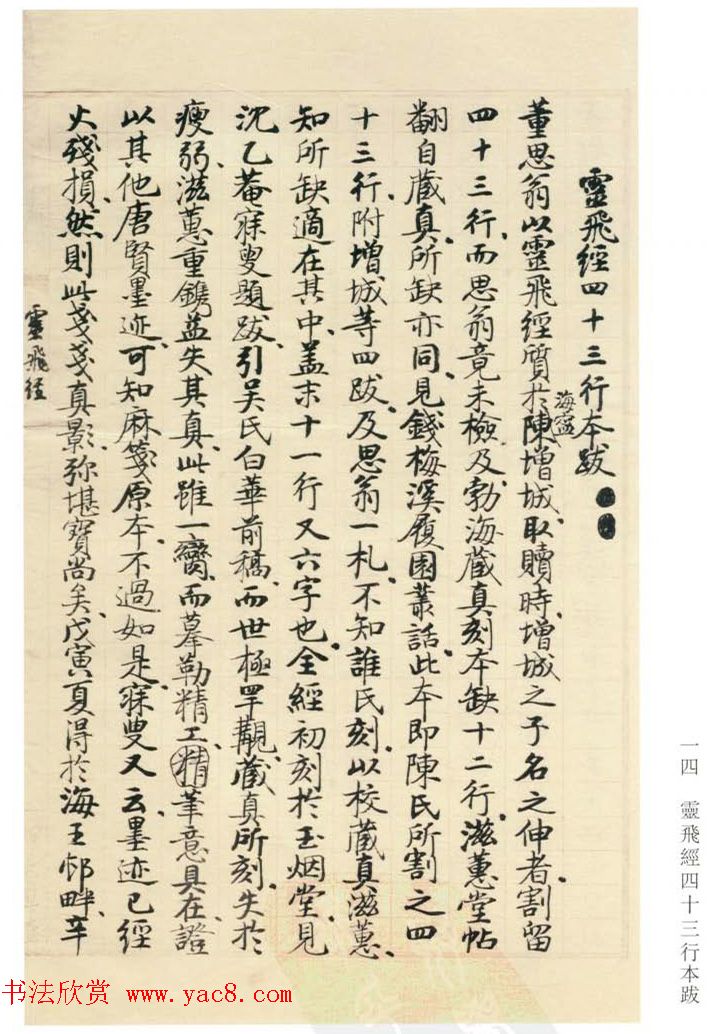 靈飛經四十三行本跋
董思翁以靈飛經質於海寧陳增城、取贖時、增城之子名之伸者、割留
四十三行、而思翁竟未檢及、勃海藏真刻本缺十二行、滋蕙堂帖
翻自藏真、所缺亦同、見錢梅溪履園叢話、此本即陳氏所割之四
十三行、附增城等四跋、及思翁一札、不知誰氏刻、以校藏真滋蕙、
知所缺適在其中、蓋末十一行又六字也、全經初刻於玉烟堂、見
沈乙菴寐叟題跋、引吳氏白華前稿、而世極罕覯、藏真所刻、失於
瘦弱、滋蕙重鐫、益失其真、此雖一臠、而摹勒精工、精筆意具在、證
以其他唐賢墨迹、可知麻箋原本、不過如是、寐叟又云、墨迹已經
火殘損、然則此戔戔真影、弥堪寶尚矣、戊寅夏得於海王邨畔、辛
靈飛經
一四 靈飛經四十三行本跋
书法欣赏 www.yac8.com